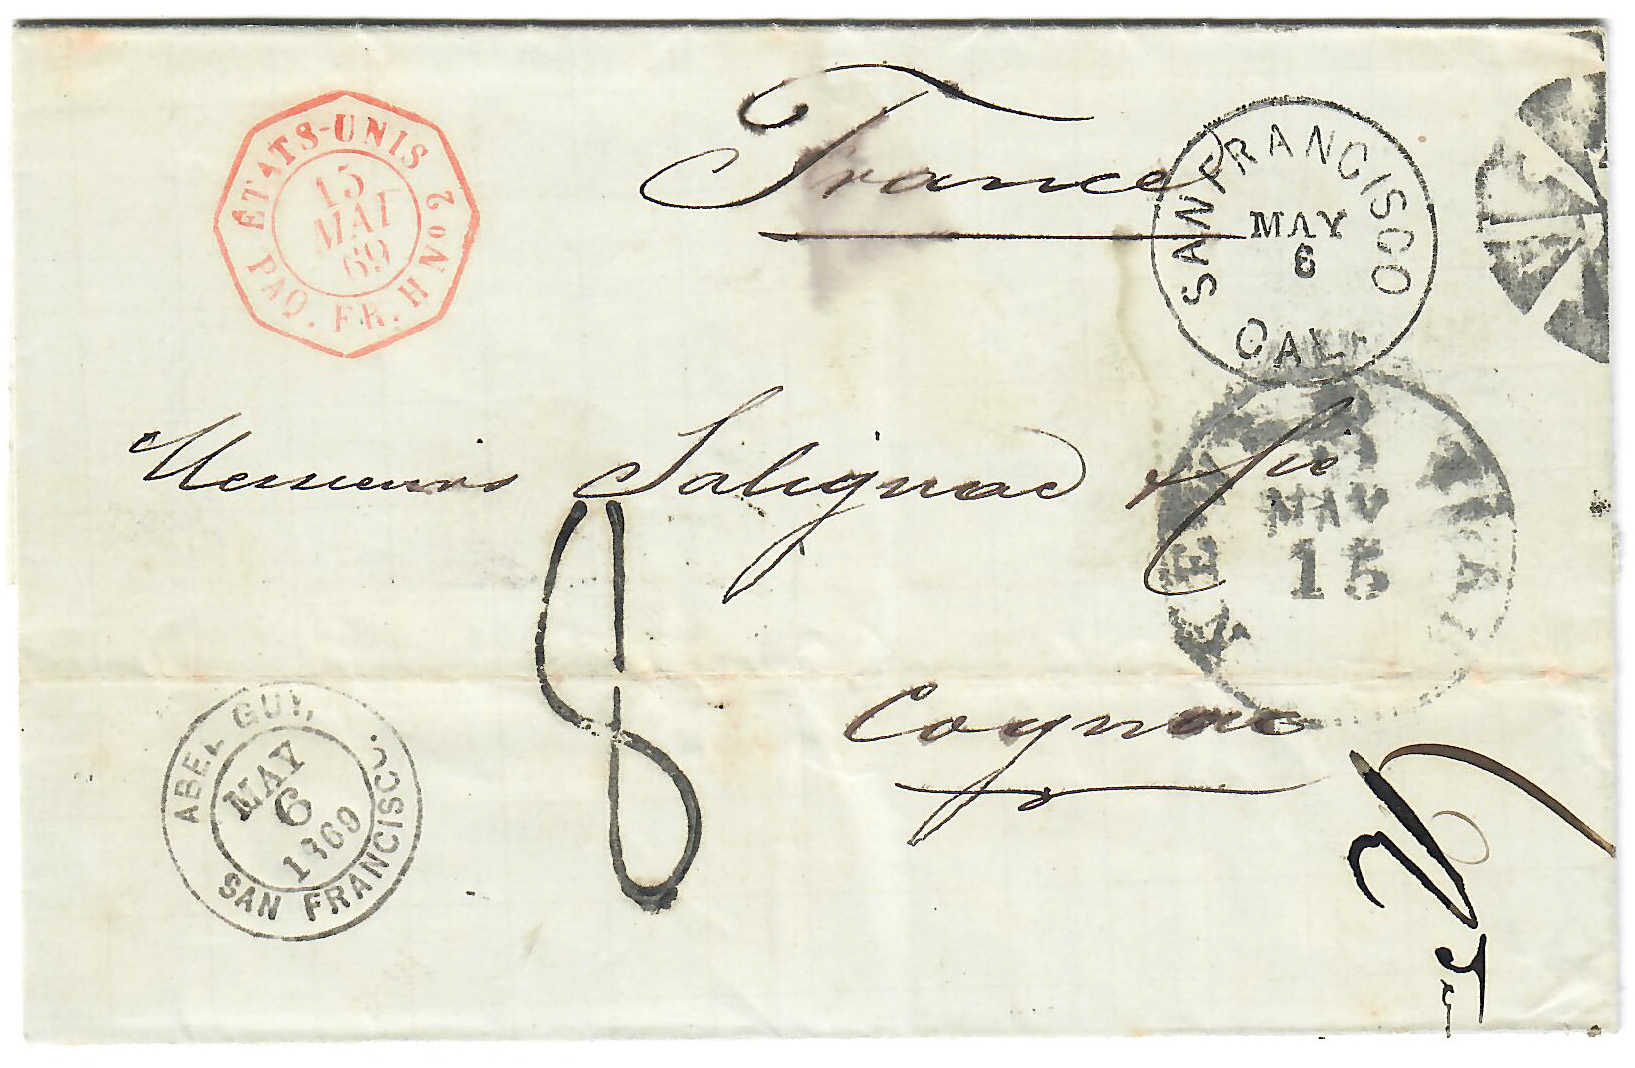 ÉTATS-UNIS
15
MAI
69
PAQ. FR. H No 2
France
SAN FRANCISCO
MAY
6
CAL
Messieurs Salignac & Cie
MAY
15
8
Cognac
ABEL GUY,
MAY
6
1869
SAN FRANCISCO